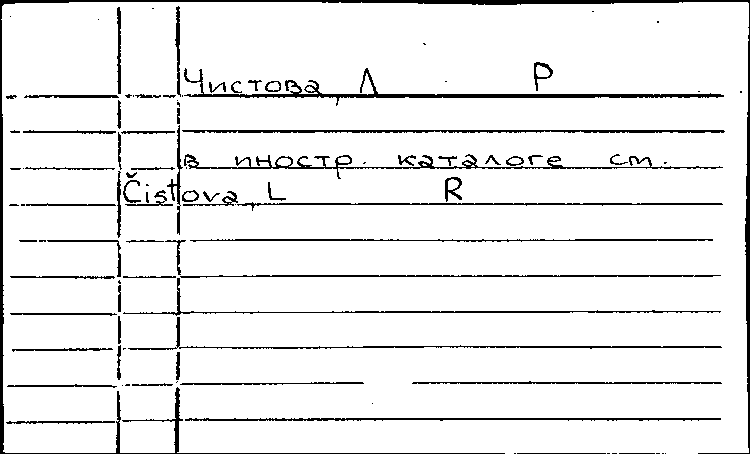 Чистова, Л Р
в иностр. каталоге см.
Čistova, L R